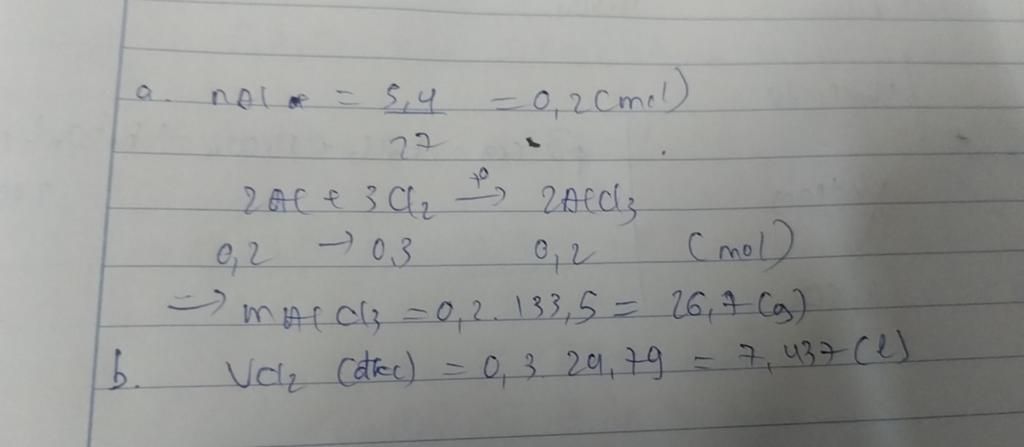 a. nAl = 5,4 / 27 = 0,2 (mol)
2Al + 3Cl₂ →t° 2AlCl₃
0,2 → 0,3 0,2 (mol)
=> mAlCl₃ = 0,2 . 133,5 = 26,7 (g)
b. VCl₂ (đkc) = 0,3 24,79 = 7,437 (l)